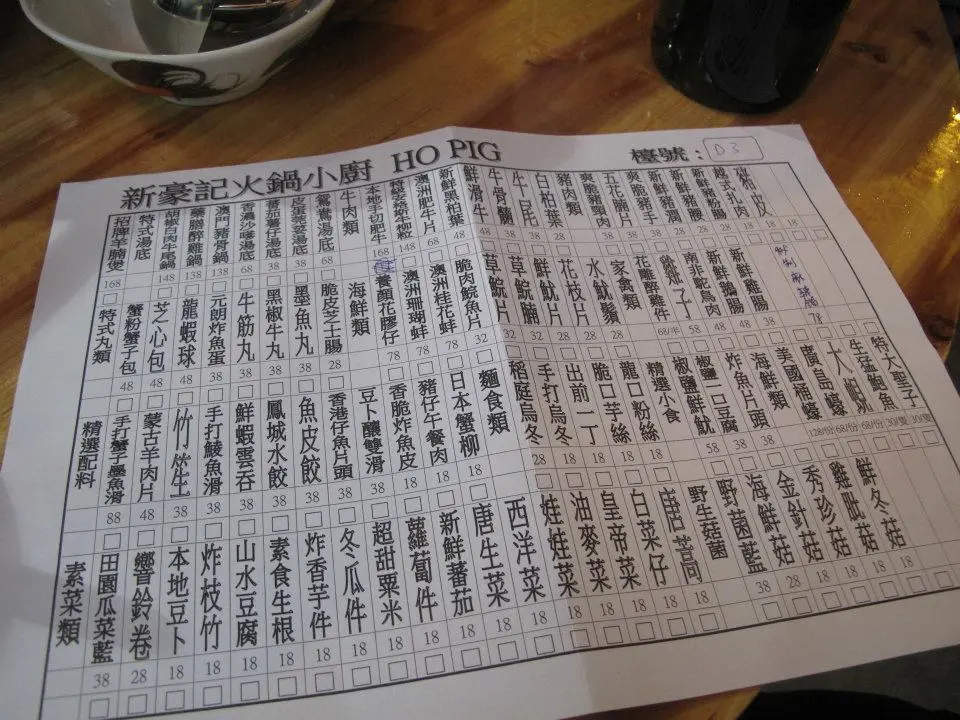 新豪記火鍋小廚 HO PIG
檯號： D3
招牌羊腩煲 168
特式湯底
胡椒白肉牛尾鍋 148
藥膳醉雞鍋 138
澳門豬骨鍋 138
香濃沙嗲湯底 68
蕃茄薯仔湯底 38
皮蛋芫荽湯底 38
鴛鴦湯底 68
牛肉類
本地手切肥牛 168
特級安格斯牛柳粒 148
澳洲肥牛片 68
新鮮黑柏葉 48
鮮滑牛 48
牛骨髓 38
牛尾 38
白柏葉 28
豬肉類
爽脆豬頸肉
五花腩片
新鮮豬手
新鮮豬膶
新鮮豬腰
新鮮豬粉腸
越式扎肉 18
豬皮 18
特式丸類
蟹粉蟹子包 48
芝心包 48
龍蝦球 48
元朗炸魚蛋 38
牛筋丸 38
黑椒牛丸 38
墨魚丸 38
脆皮芝士腸 28
海鮮類
養顏花膠仔 78
澳洲珊瑚蚌 78
澳洲桂花蚌 78
脆肉鯇魚片 32
草鯇片 32
草鯇腩 32
鮮魷片 28
花枝片 28
水魷鬚 28
家禽類
花雕醉雞件 68/半
雞子 58
南非鴕鳥肉 48
新鮮鵝腸 48
新鮮雞腸 38
78
精選配料
手打蟹子墨魚滑 88
蒙古羊肉片 48
竹笙 38
手打鯪魚滑 38
鮮蝦雲吞 38
鳳城水餃 38
魚皮餃 38
香港仔魚片頭 38
豆卜釀雙滑 38
香脆炸魚皮 18
豬仔午餐肉 18
日本蟹柳 18
麵食類
稻庭烏冬 28
手打烏冬 18
出前一丁 18
脆口芋絲 18
龍口粉絲 18
精選小食
椒鹽鮮魷 58
椒鹽一口豆腐 38
炸魚片頭 38
海鮮類
美國桶蠔 128/份
廣島蠔 68/份
大蜆 68/份
生猛鮑魚 30/隻
特大聖子 30/隻
素菜類
田園瓜菜籃 38
響鈴卷 28
本地豆卜 18
炸枝竹 18
山水豆腐 18
素食生根 18
炸香芋件 18
冬瓜件 18
超甜粟米 18
蘿蔔件 18
新鮮蕃茄 18
唐生菜 18
西洋菜 18
娃娃菜 18
油麥菜 18
皇帝菜 18
白菜仔 18
唐蒿 18
野生菇菌
野菌籃 38
海鮮菇 28
金針菇 18
秀珍菇 18
雞髀菇 18
鮮冬菇 18